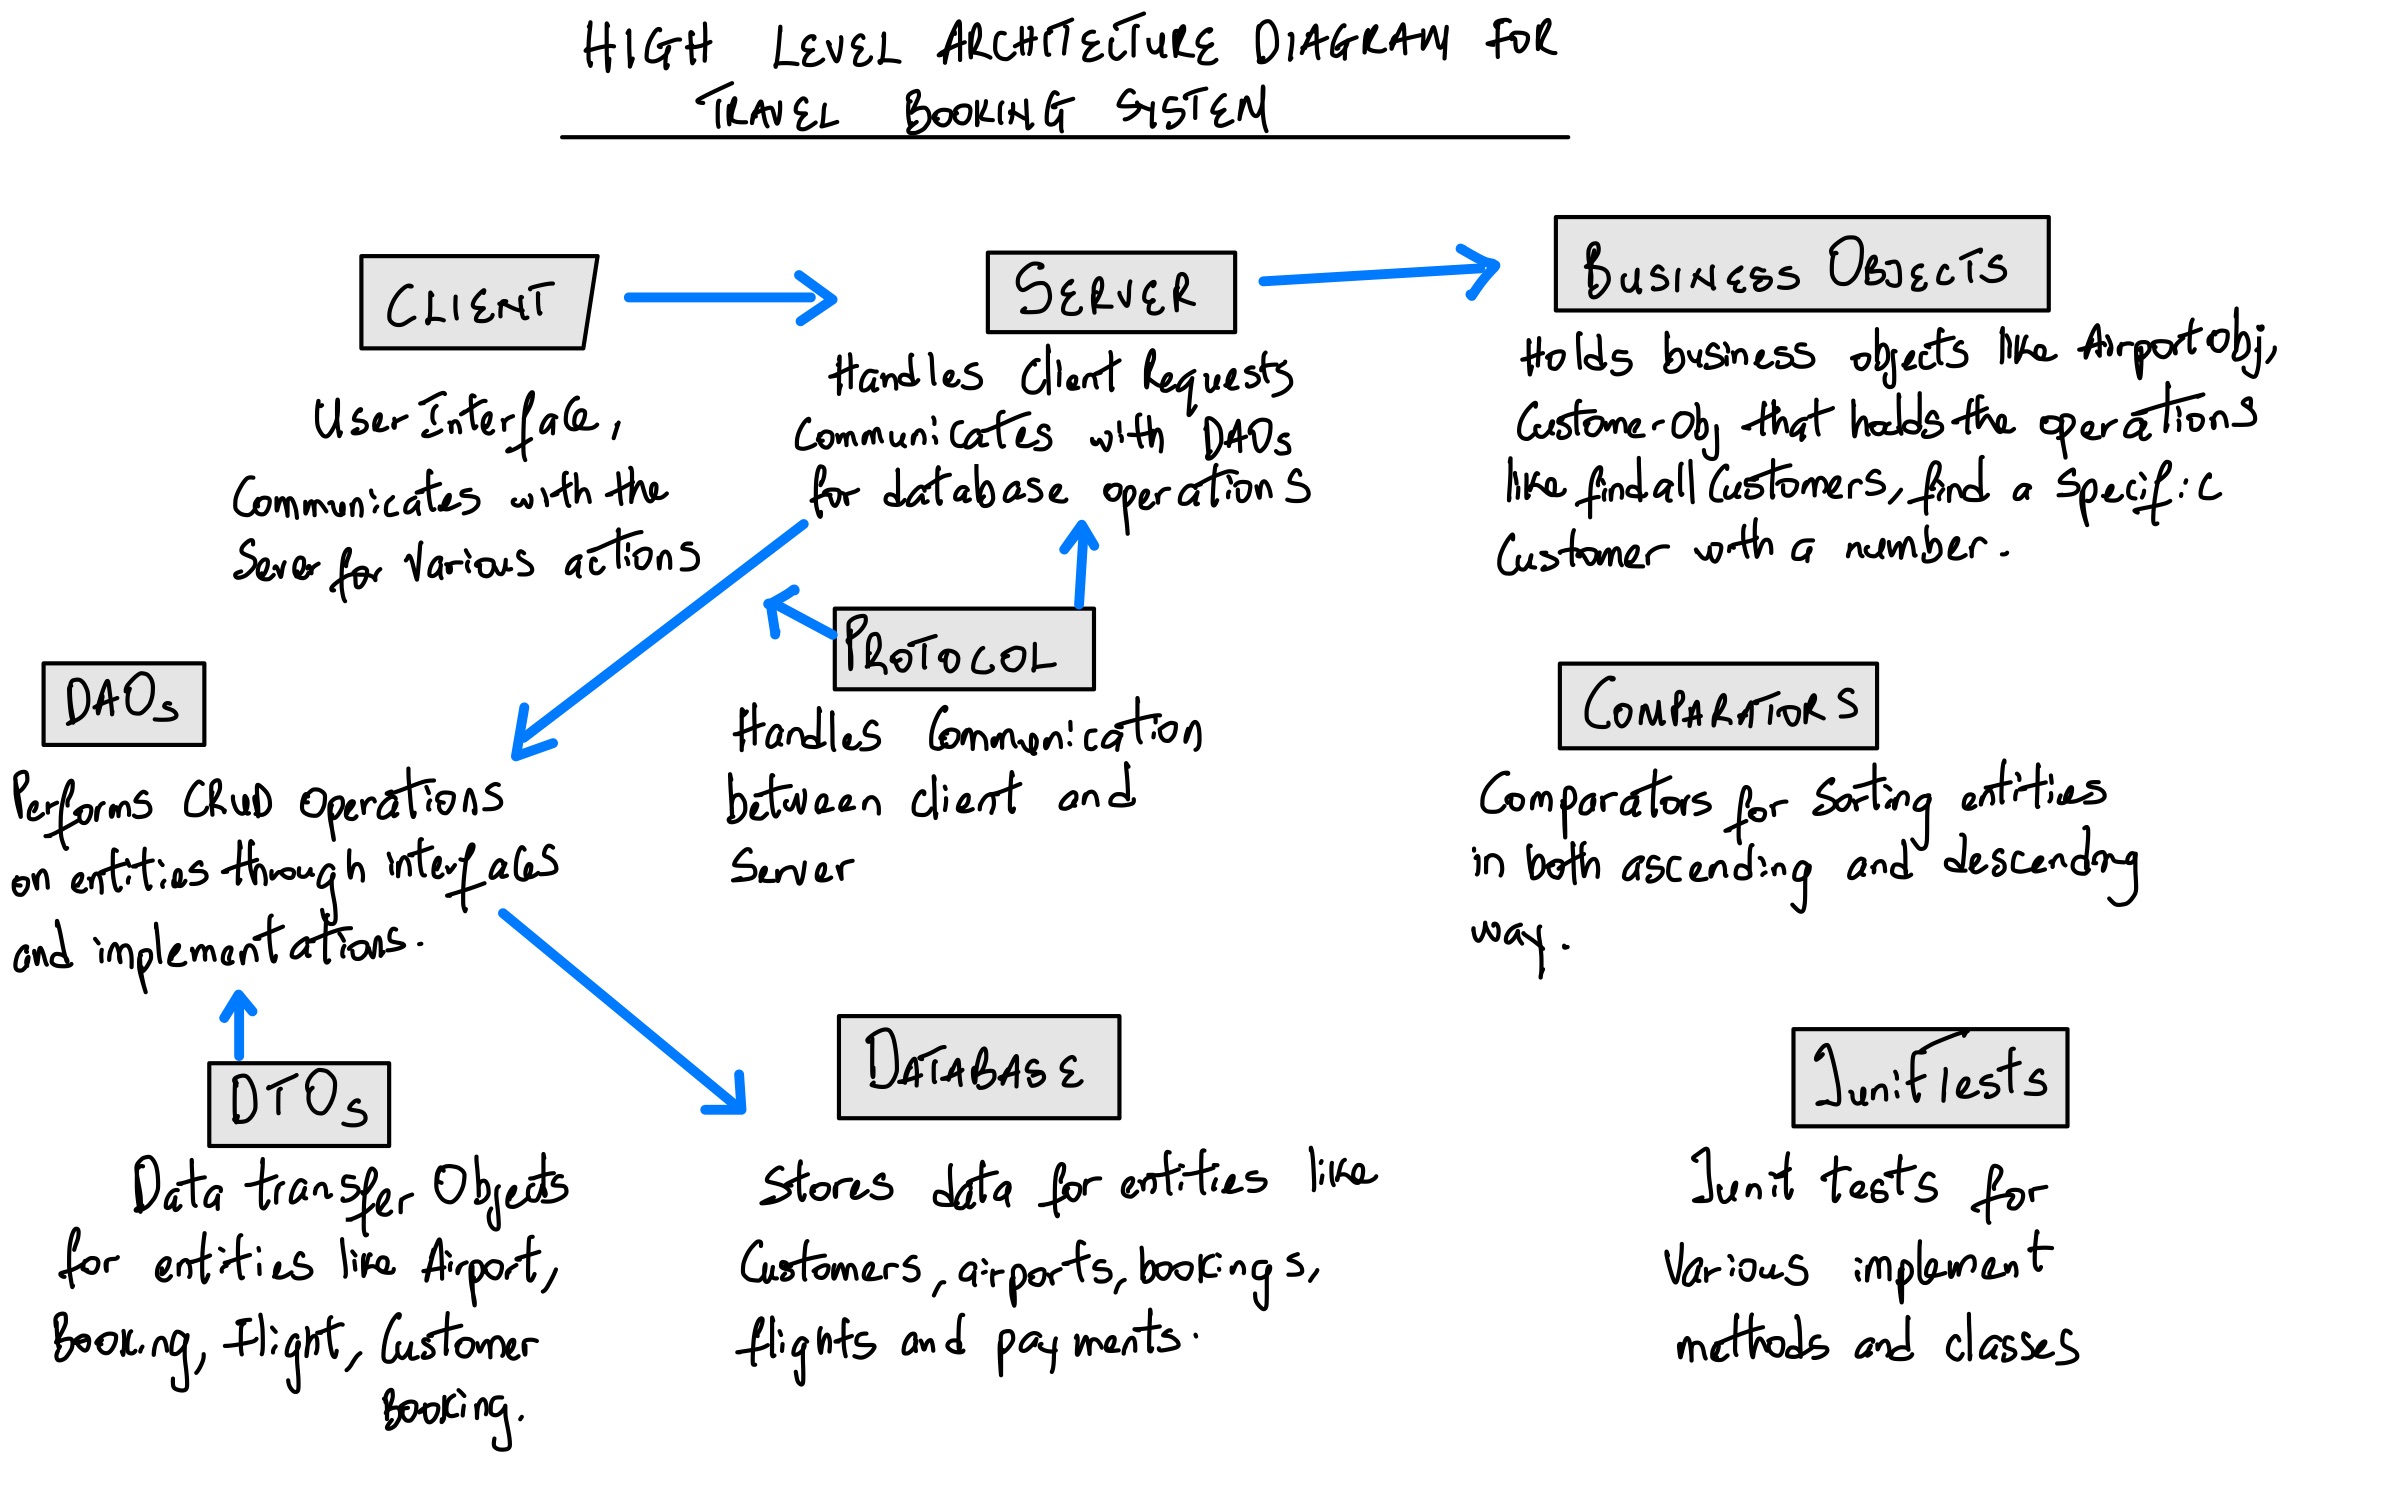 HIGH LEVEL ARCHITECTURE DIAGRAM FOR
TRAVEL BOOKING SYSTEM
CLIENT
User Interface,
Communicates with the
Sever for various actions
SERVER
Handles Client Requests
Communicates with DAOs
for database operations
BUSINESS OBJECTS
Holds business objects like Airportobj,
CustomerObj that holds the operations
like findall Customers, find a specific
Customer with a number.
PROTOCOL
Handles Communication
between client and
Server
DAOs
Performs CRUD operations
on entities through interfaces
and implementations.
COMPARATORS
Comparators for Sorting entities
in both ascending and descending
way.
DTOs
Data transfer Objects
for entities like Airport,
Booking, Flight, Customer
Booking.
DATABASE
Stores data for entities like
Customers, airports, bookings,
flights and payments.
JunitTests
Junit tests for
various implement
methods and classes